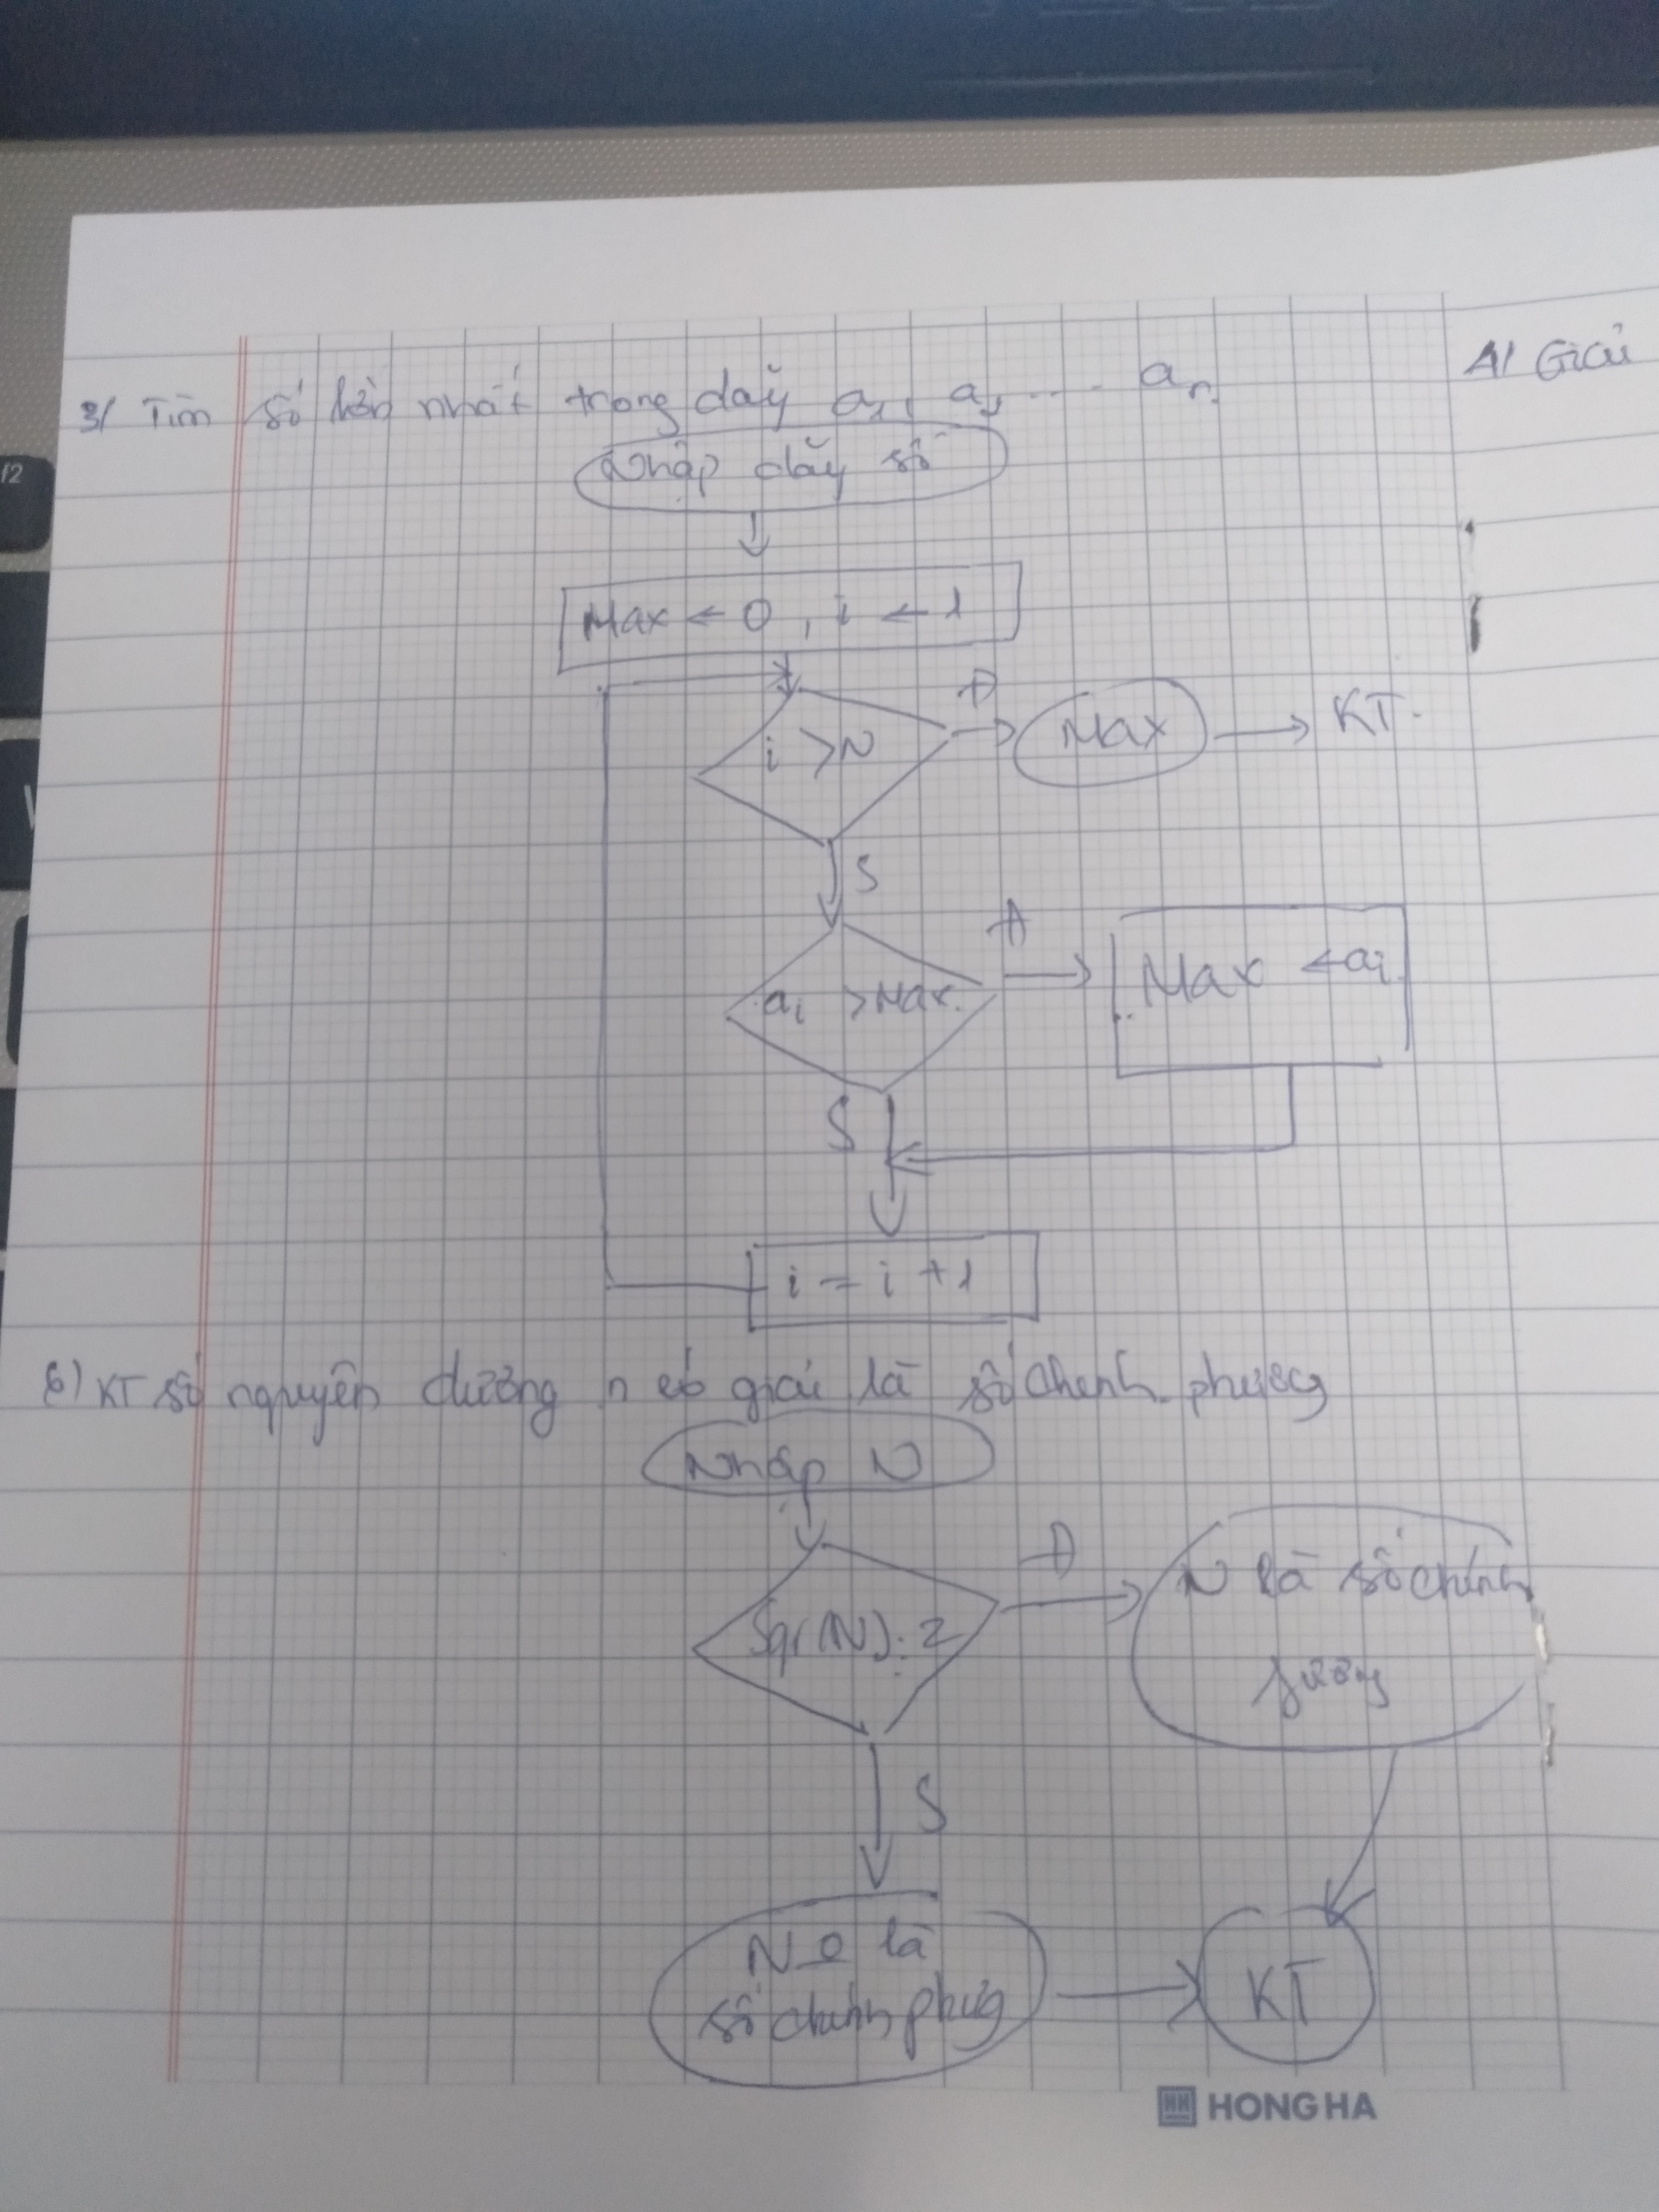 3/ Tìm số lớn nhất trong dãy a1, a2, ---- an.
A/ Giải
Nhập dãy số
Max ← 0, i ← 1
i > N
Đ
Max
KT.
S
ai > Max.
Đ
Max ← ai
S
i = i + 1
6) KT số nguyên dương n có phải là số chính phương
Nhập N
Sqr(N) : 2
Đ
N là số chính
phương
S
N 0 là
số chính phương
KT
HH HONG HA
f2